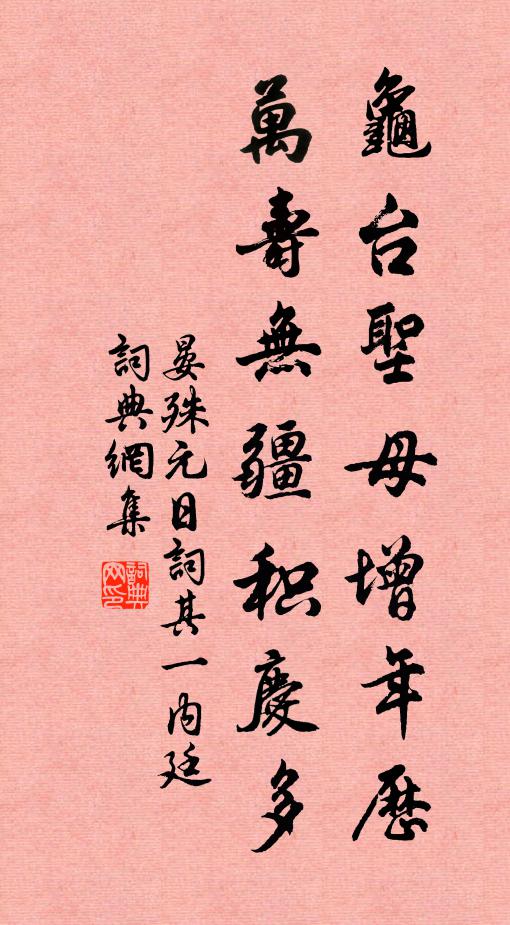 龜台聖母增年歷
萬壽無疆积慶多
晏殊元日詞其一內廷
詞典網集
詞典
网印